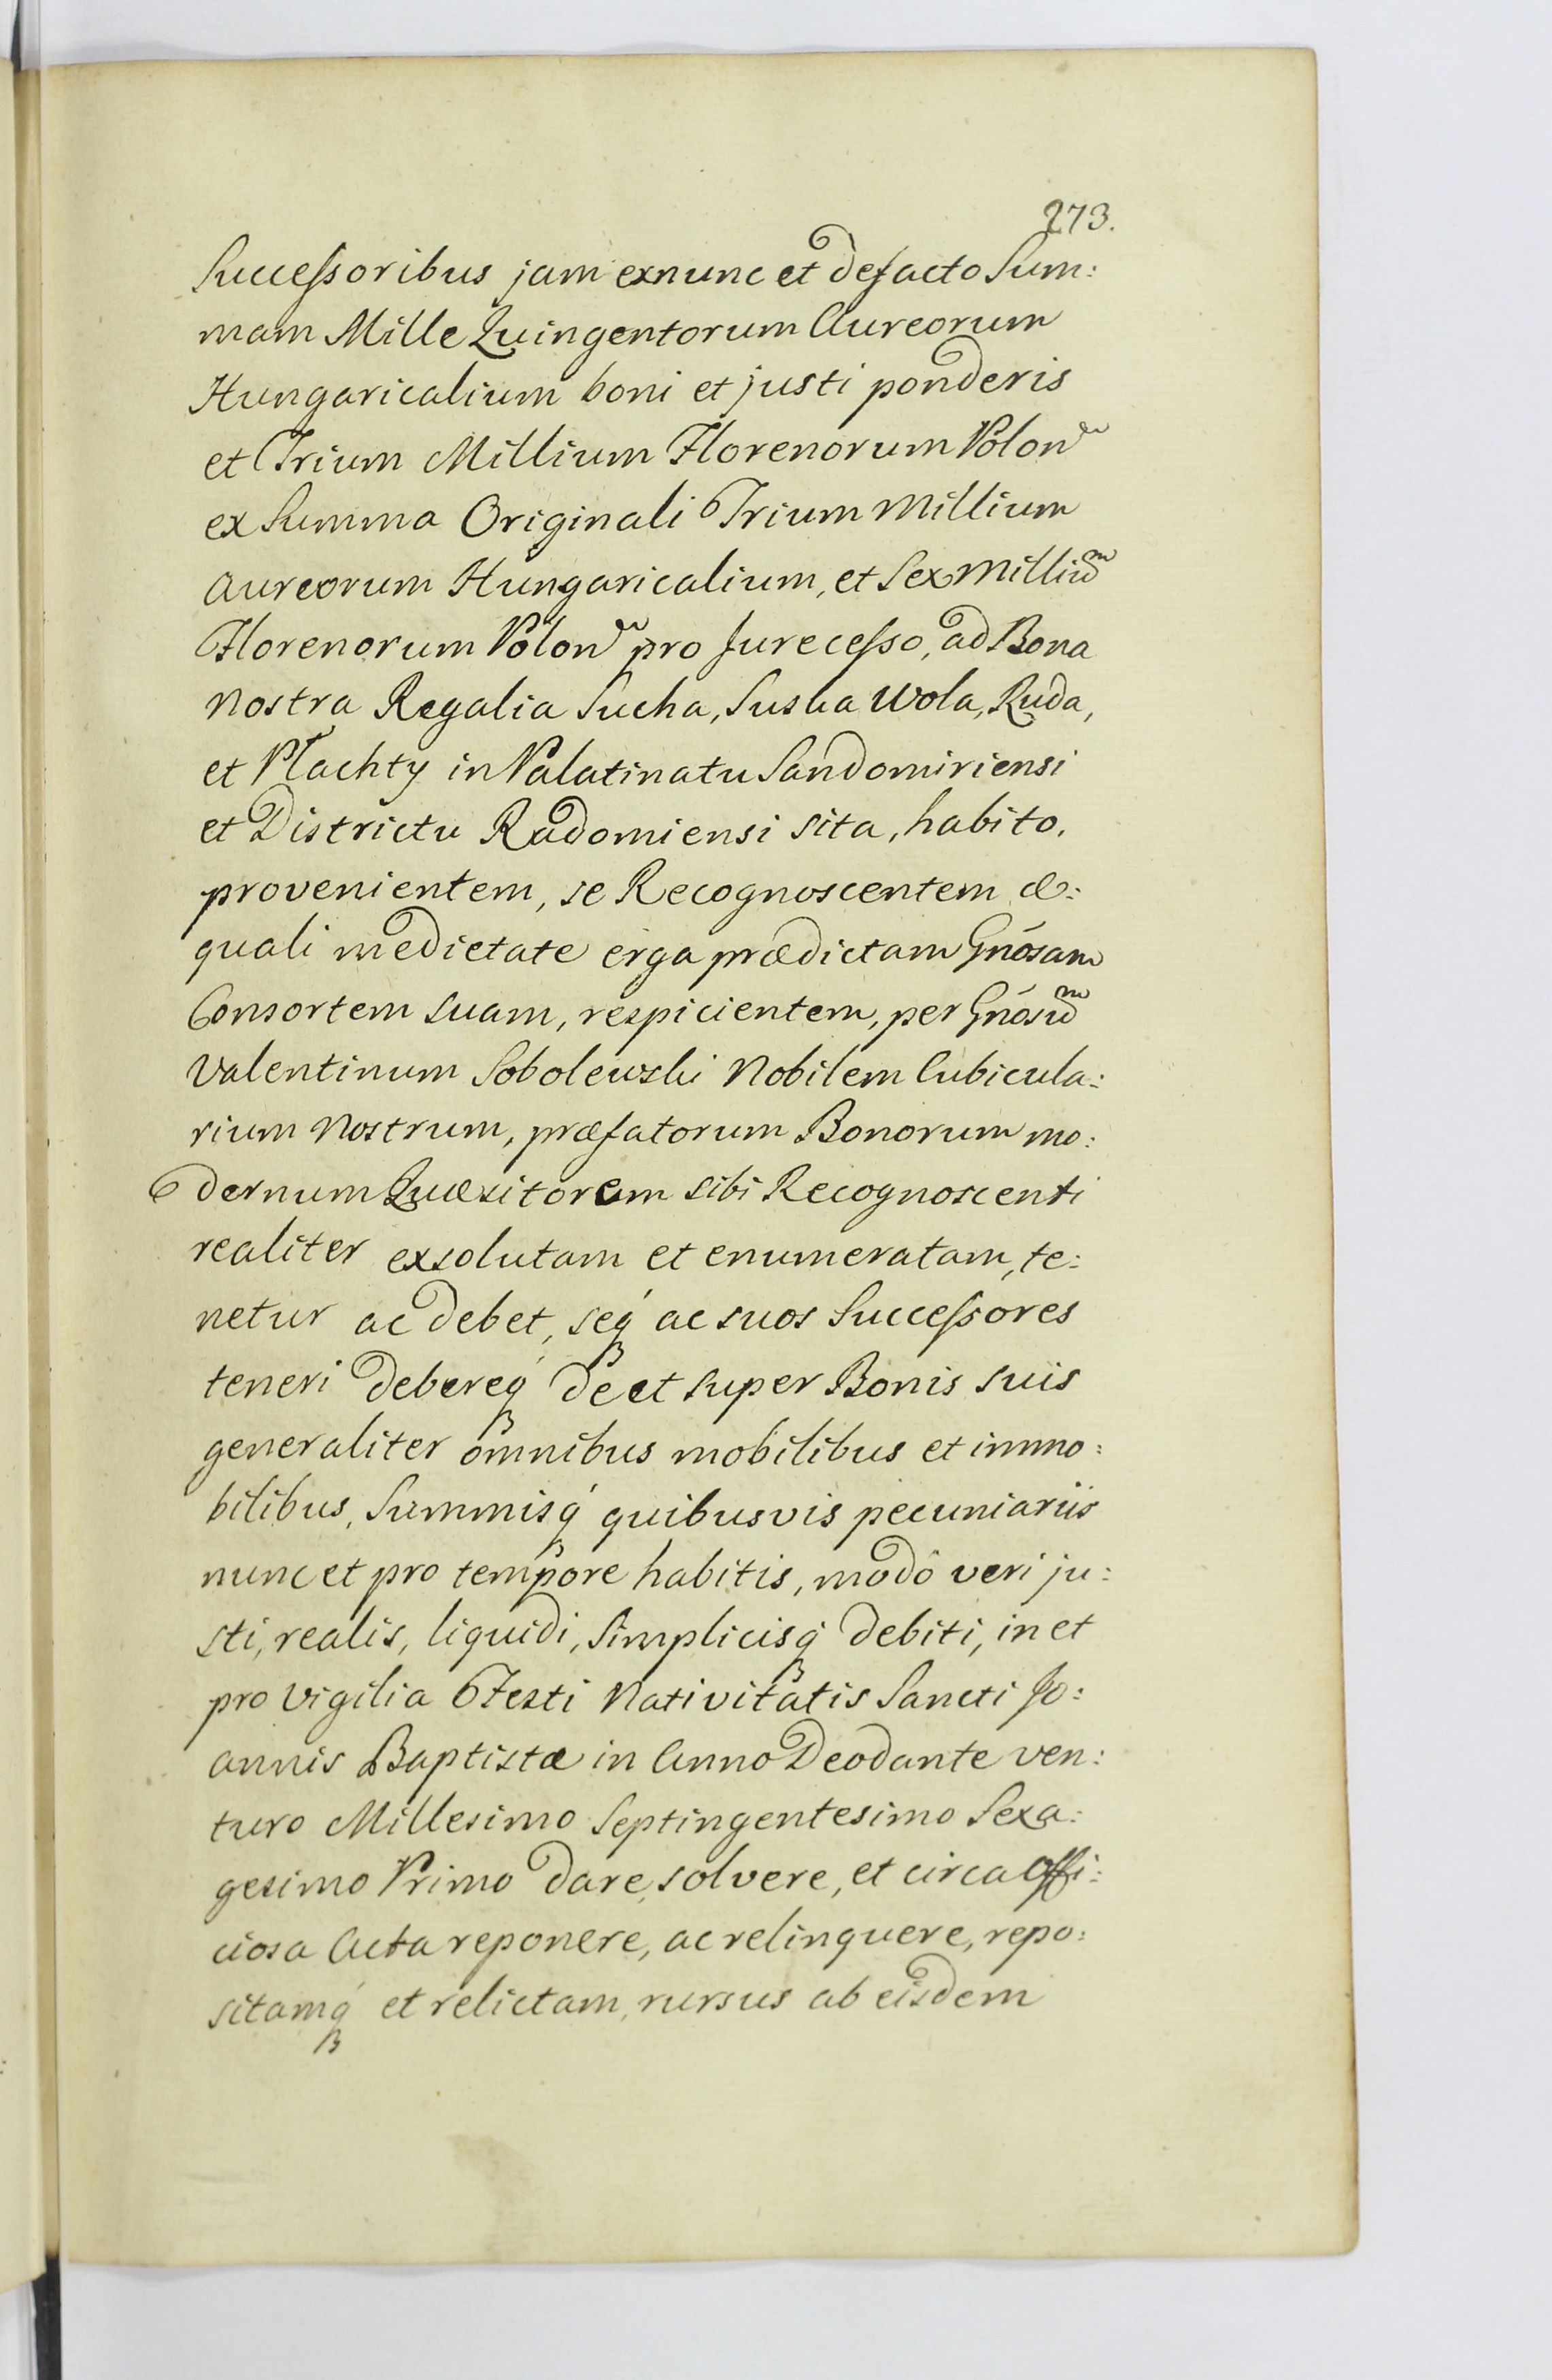 273.
Successoribus jam exnunc et defacto Sum:
mam Mille Quingentorum Aureorum
Hungaricalium boni et justi ponderis
et Trium Millium Florenorum Polon
ex Summa Originali Trium Millium
Aureorum Hungaricalium, et Sex Milliu͠m
Florenorum Polon pro Jurecesso, ad Bona
Nostra Regalia Sucha, Suska Wola, Ruda,
et Płachty in Palatinatu Sandomiriensi
et Districtu Radomiensi sita, habito,
provenientem, se Recognoscentem æ:
quali medietate erga prædictam Gnósam
Consortem suam, respicientem, per Gnósum
Valentinum Sobolewski Nobilem Cubicula:
rium Nostrum, præfatorum Bonorum mo:
dernum Quæsitorem sibi Recognoscenti
realiter exsolutam et enumeratam, te:
netur ac debet, seq́ ac suos Successores
teneri debereq́ de et super Bonis suis
generaliter omnibus mobilibus et immo:
bilibus, Summisq́ quibusvis pecuniariis
nunc et pro tempore habitis, modô veri ju:
sti, realis, liquidi, Simplicisq́ debiti, in et
pro Vigilia Festi Nativitatis Sancti Jo:
annis Baptistæ in Anno Deodante ven:
turo Millesimo Septingentesimo Sexa:
gesimo Primo dare, solvere, et circa Offi:
ciosa Acta reponere, ac relinquere, repo:
sitamq́ et relictam, rursus ab eisdem